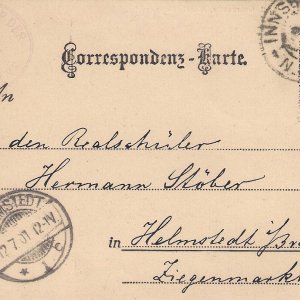 Correspondenz-Karte.
INNSB
n
den Realschüler
Hermann Stöber
in Helmstedt i/Br
Ziegenmarkt
MSTEDT
12.7.01.12-1N.
c